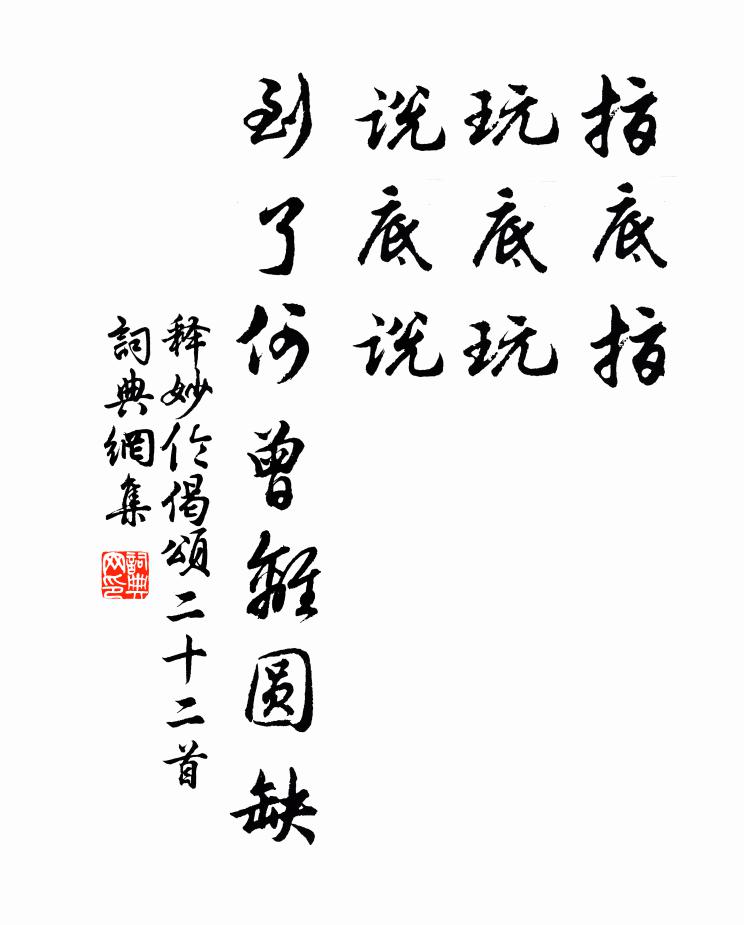 指底指
玩底玩
说底说
到了何曾離圆缺
释妙伦偈頌二十二首
詞典網集
詞典网印